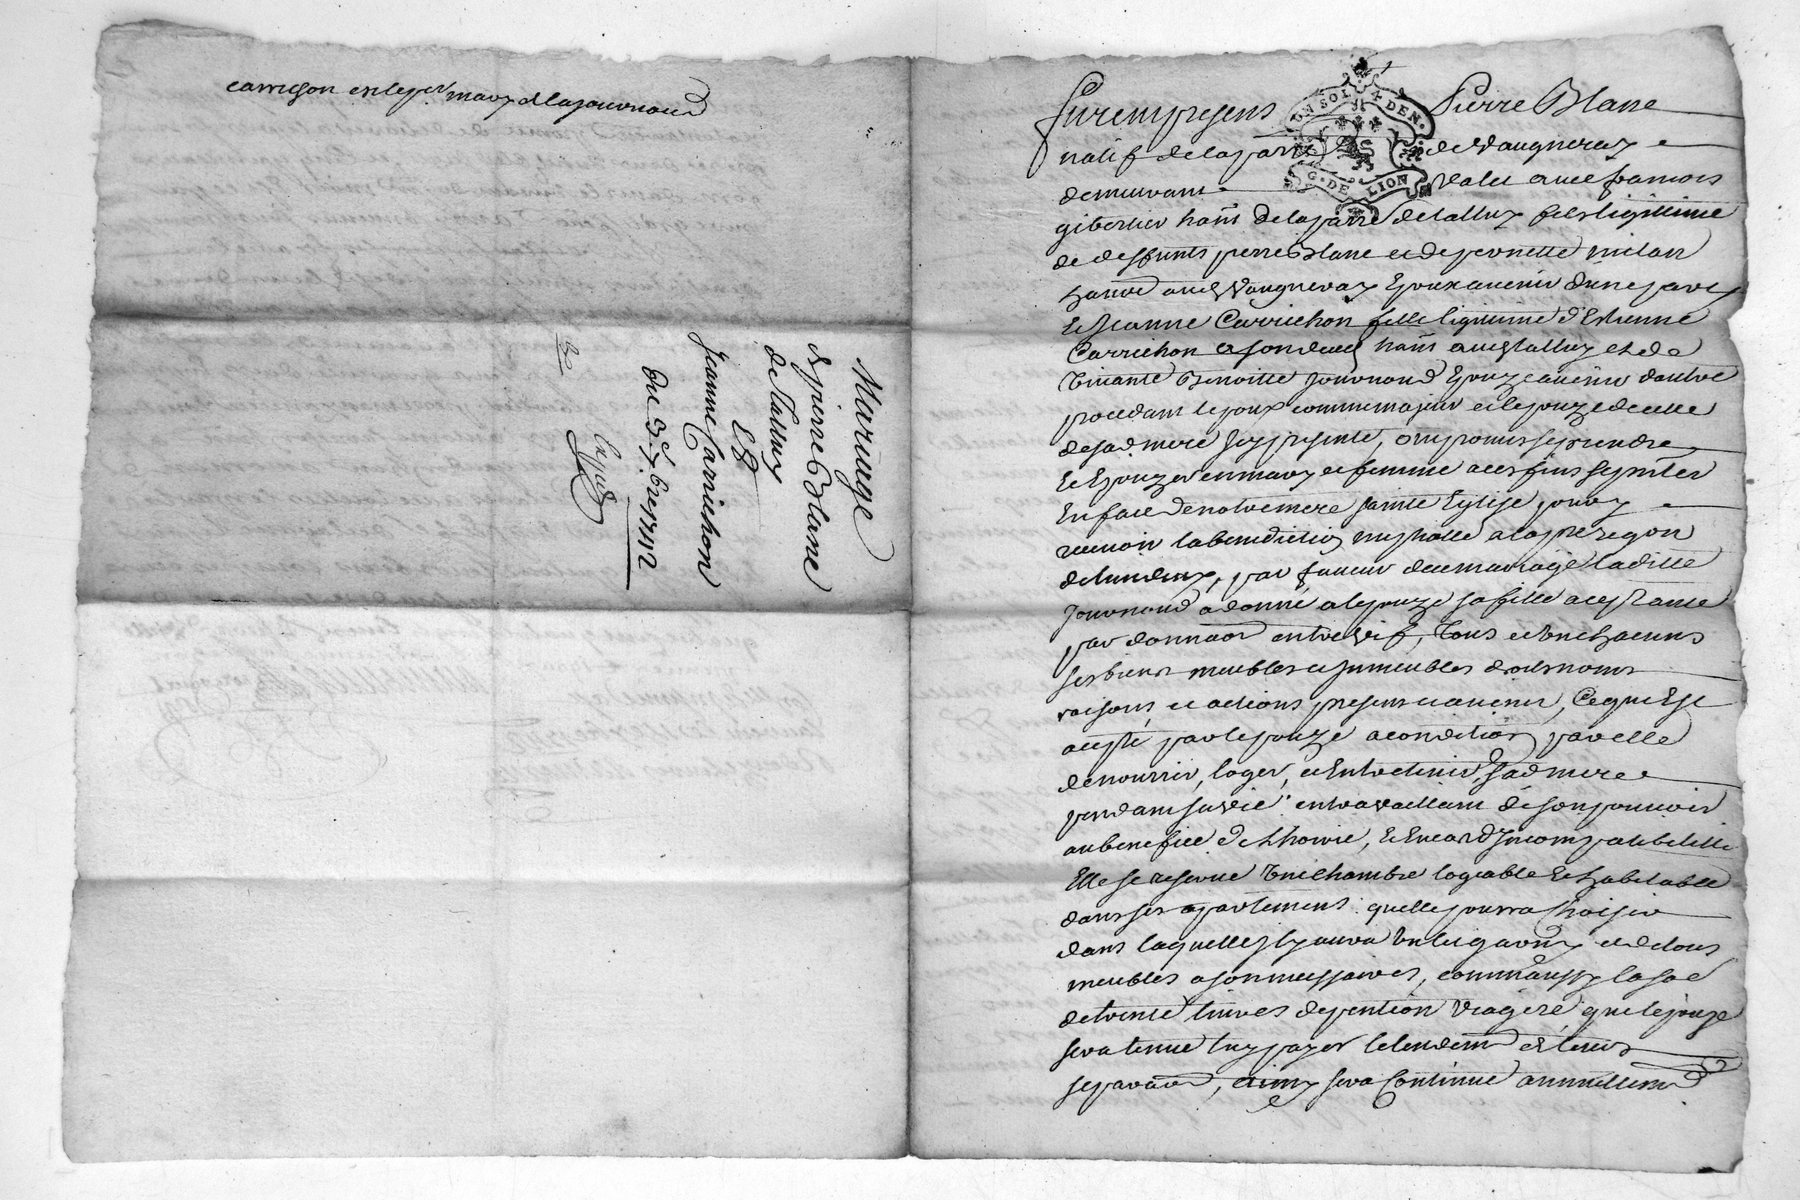 carrichon exleper mary de la jouvnoud
Mariage
de pierre Blanc
de Talluy
Et
Jeanne Carrichon
Du 3e 7bre 1712
Expedié
UN SOL 4 DEN.
G. DE LION
Furent presens Pierre Blanc
natif de la parre de Vaugneray
demeurant valet avec francois
gibertier hant de la parre de talluy fils legitime
de deffunts pierre Blanc et de pernette milan
hant aud Vaugneray Epoux avenir d'une part
Et Jeanne Carrichon fille legitime d'Estienne
Carrichon hant aud talluy et de
vivante Benoitte Jouvnoud Epouze avenir d'autre
procedant lepoux comme majeur et lepouze de celle
de sad mere Icy presente, ont promis se prendre
Et Epouzer en mary et femme a ces fins se pnter
En face de notre mere sainte Eglise pour y
recevoir la benediction nuptialle a la pre reqon
de lun deux, par faveur de ce mariage laditte
Jouvnoud a donné a lepouze sa fille aceptante
par donnaon entre vif, tous et un chacuns
ses biens meubles et Immeubles droits noms
raisons et actions presens et avenir, Ce qui Est
acepté par lepouze a condition par elle
de nourrir, loger, et Entretenir, sad mere
pendant sa vie en travaillant de son pouvoir
au benefice de Lhoirie, Et En cas d'Incompatibilitté
Elle se reserve Une Chambre logeable Et habitable
dans ses apartemens quelle pourra choisir
dans laquelle Il y aura Un lit garny et de tous
meubles a son necessaires, comm'aussy la so[mm]e
de trente livres de pention Viagere que lepouze
sera tenue luy payer le lendem de leur
separaon, ainsy sera Continué annuellemt